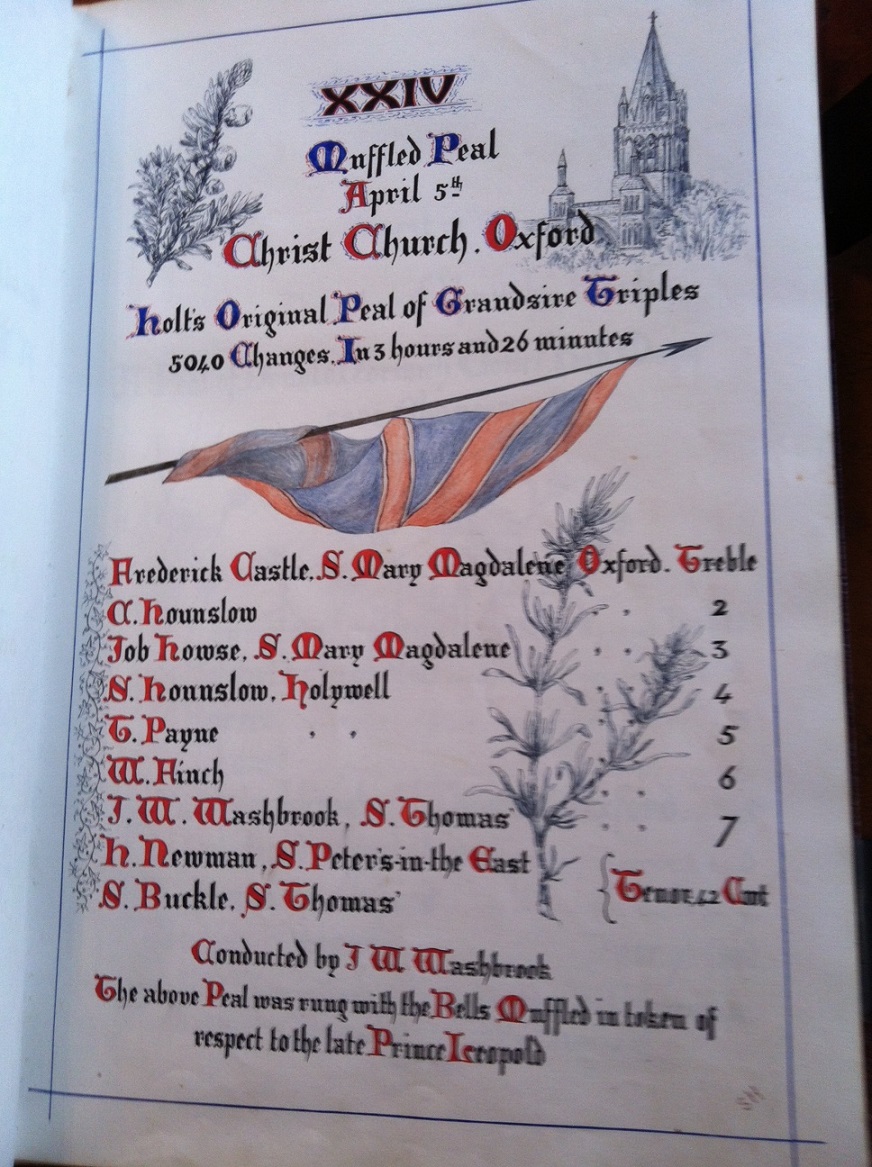 XXIV
Muffled Peal
April 5th
Christ Church. Oxford
Holt's Original Peal of Grandsire Triples
5040 Changes. In 3 hours and 26 minutes
Frederick Castle, S. Mary Magdalene Oxford. Treble
C. Hounslow " " 2
Job Howse, S. Mary Magdalene " " 3
S. Hounslow, Holywell " " 4
T. Payne " " " " 5
W. Finch " " 6
J. W. Washbrook, S. Thomas' " " 7
H. Newman, S. Peter's-in-the East
S. Buckle, S. Thomas' { Tenor, 42 Cwt
Conducted by J W Washbrook
The above Peal was rung with the Bells Muffled in token of
respect to the late Prince Leopold